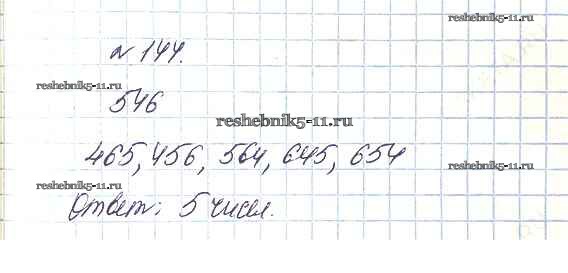 reshebnik5-11.ru
№ 144.
reshebnik5-11.ru
546
reshebnik5-11.ru
465, 456, 564, 645, 654
reshebnik5-11.ru
reshebnik5-11.ru
Ответ: 5 чисел.